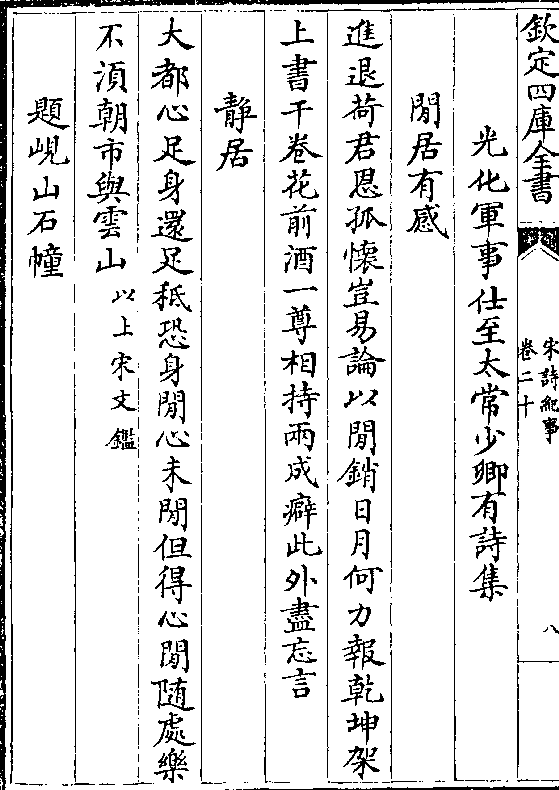 欽定四庫全書
宋詩紀事
卷二十
八
光化軍事仕至太常少卿有詩集
閒居有感
進退荷君恩孤懷豈易論以閒銷日月何力報乾坤架
上書千卷花前酒一尊相持兩成癖此外盡忘言
靜居
大都心足身還足秪恐身閒心未閒但得心閒随處樂
不湏朝市與雲山以上宋文鑑
題峴山石幢